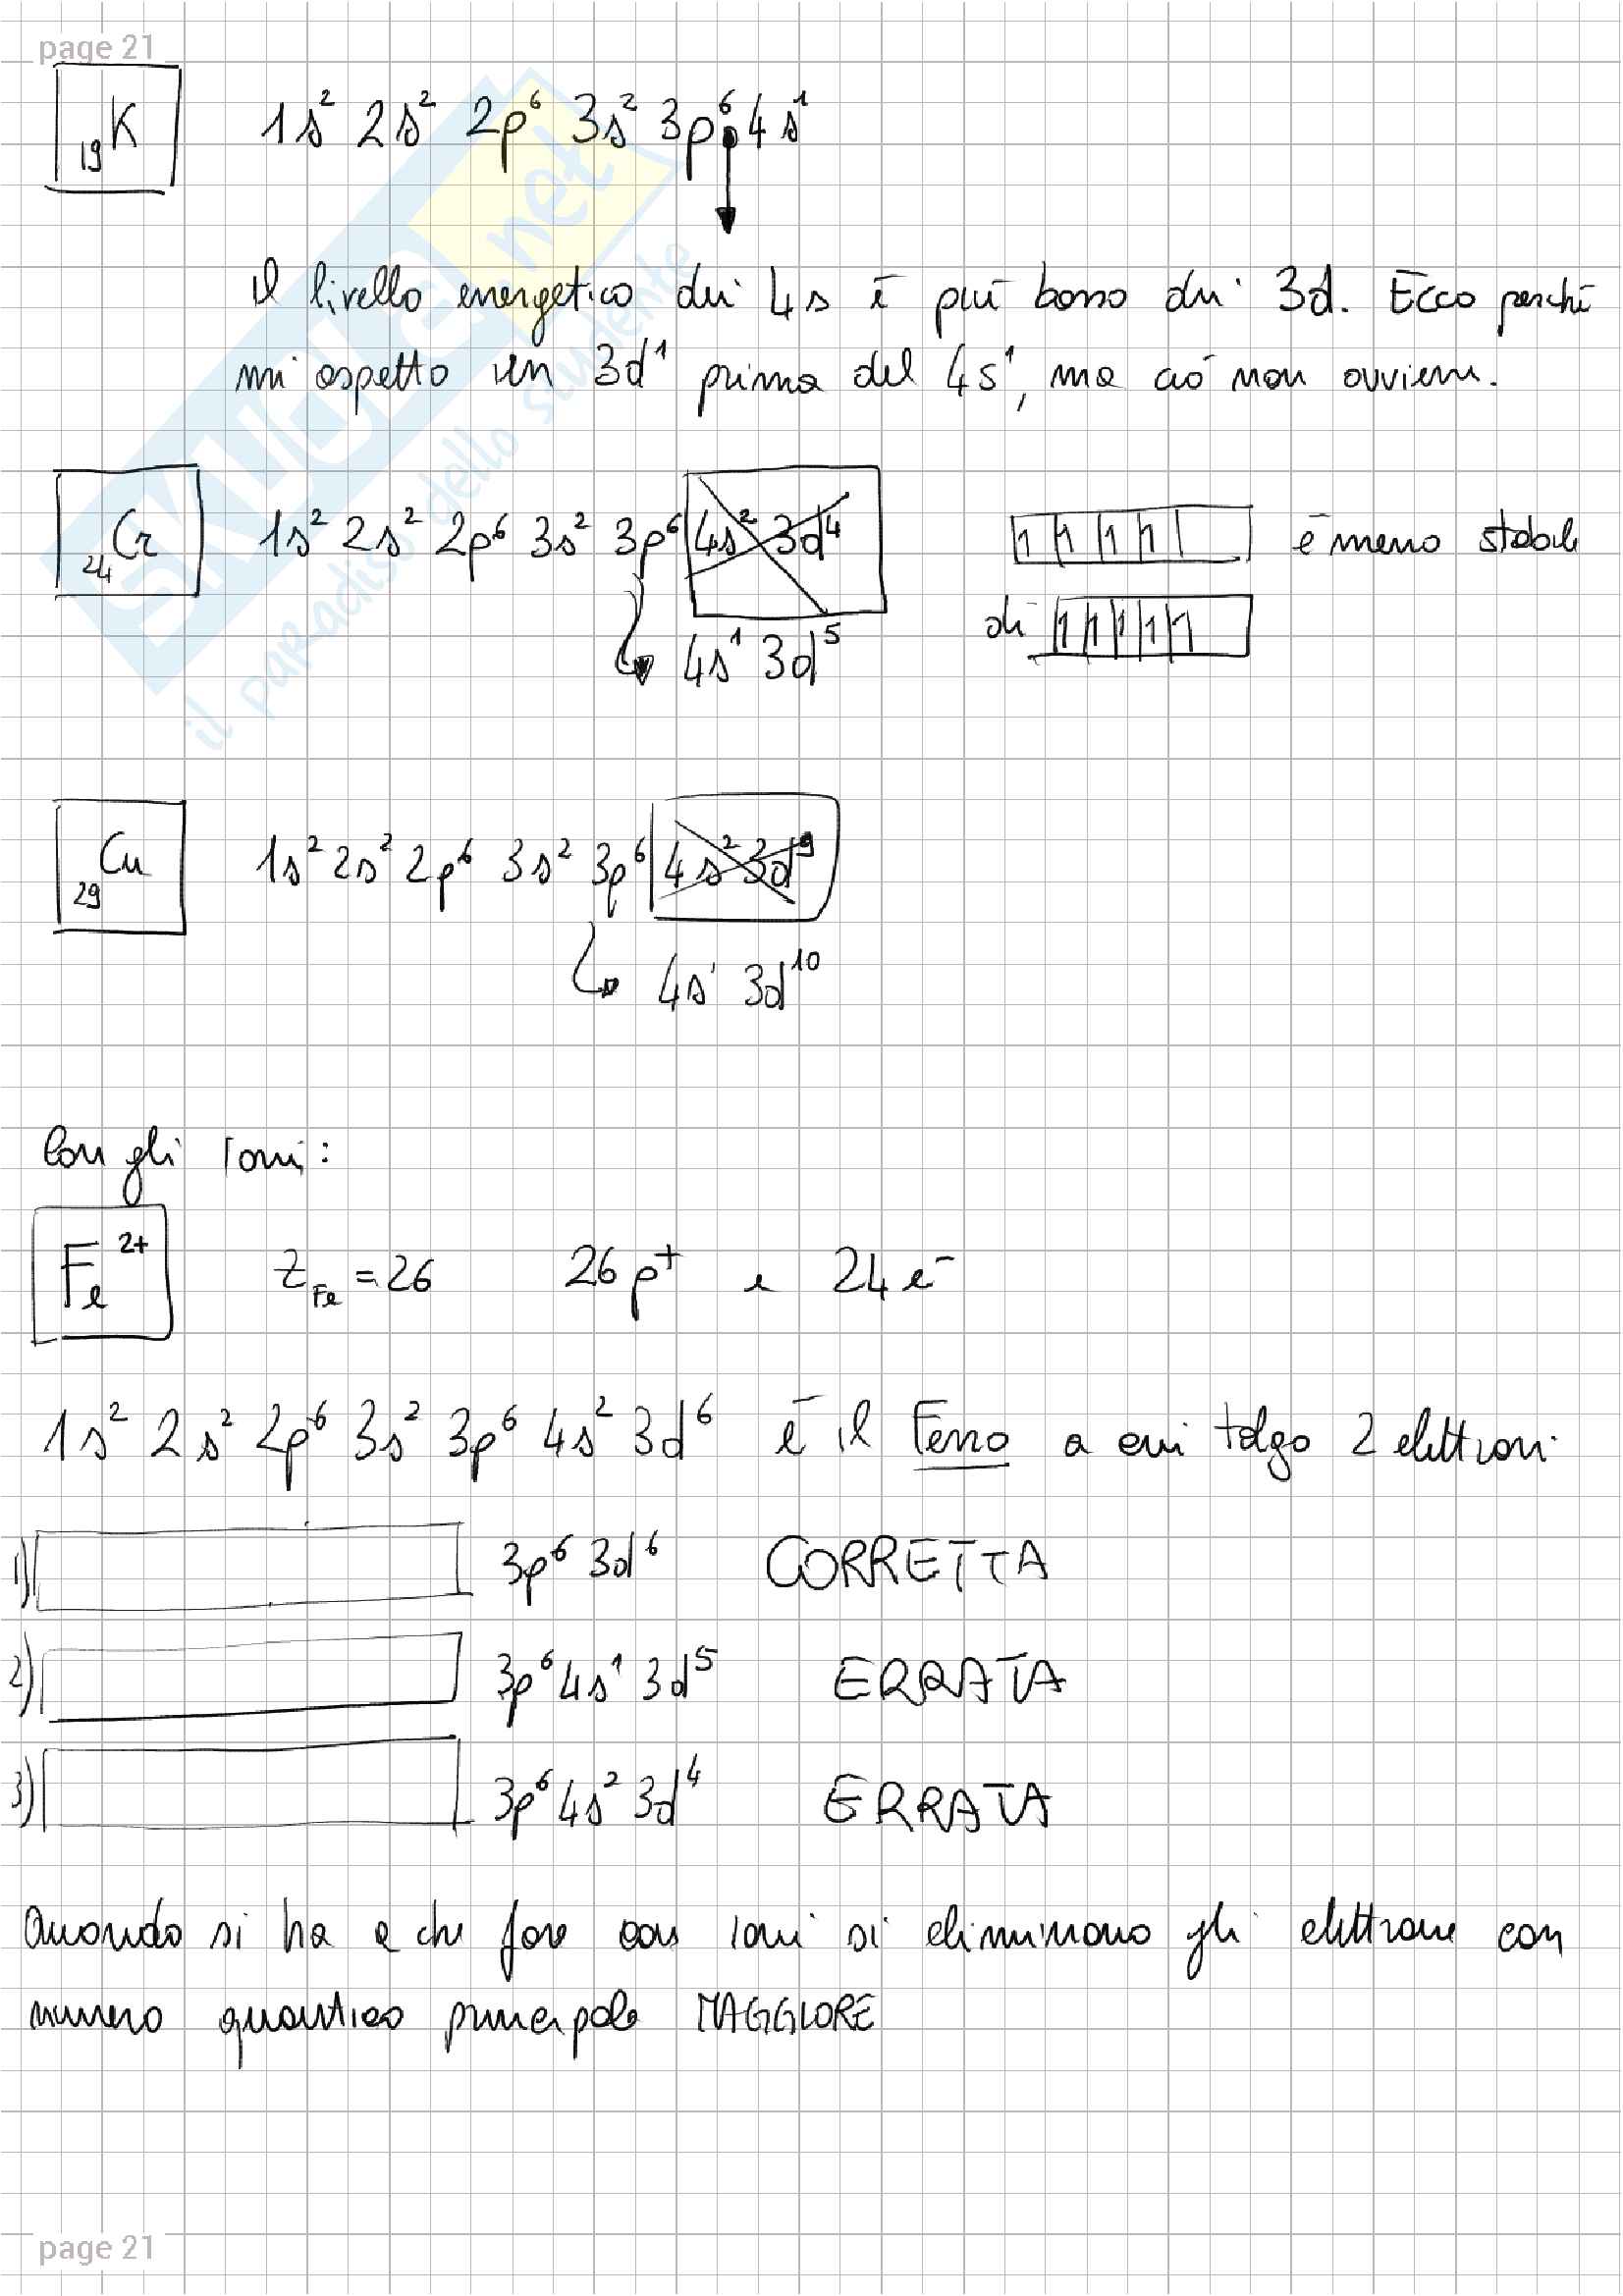 page 21
₁₉K 1s² 2s² 2p⁶ 3s² 3p⁶ 4s¹
Il livello energetico dei 4s è più basso dei 3d. Ecco perché
mi aspetto un 3d¹ prima del 4s¹, ma ciò non avviene.
₂₄Cr 1s² 2s² 2p⁶ 3s² 3p⁶ 4s² 3d⁴ 1 1 1 1 è meno stabile
4s¹ 3d⁵ di 1 1 1 1 1
₂₉Cu 1s² 2s² 2p⁶ 3s² 3p⁶ 4s² 3d⁹
4s¹ 3d¹⁰
Con gli ioni:
Fe²⁺ Z_Fe = 26 26 p⁺ e 24 e⁻
1s² 2s² 2p⁶ 3s² 3p⁶ 4s² 3d⁶ è il Ferro a cui tolgo 2 elettroni
1) 3p⁶ 3d⁶ CORRETTA
2) 3p⁶ 4s¹ 3d⁵ ERRATA
3) 3p⁶ 4s² 3d⁴ ERRATA
Quando si ha a che fare con ioni si eliminano gli elettroni con
numero quantico principale MAGGIORE
page 21
SKUOLA.net
il paradiso dello studente